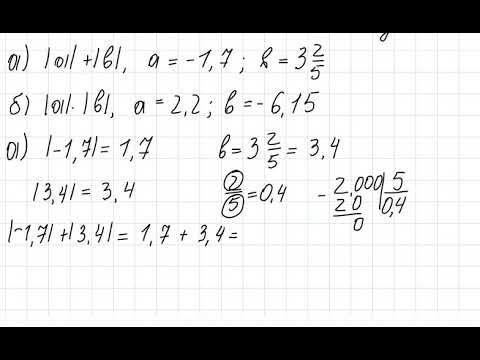 а) |а| + |в|, а = -1,7; в = 3 2/5
б) |а| · |в|, а = 2,2; в = -6,15
а) |-1,7| = 1,7 в = 3 2/5 = 3,4
|3,4| = 3,4 2/5 = 0,4 - 2,000 | 5
2 0 0,4
0
|-1,7| + |3,4| = 1,7 + 3,4 =